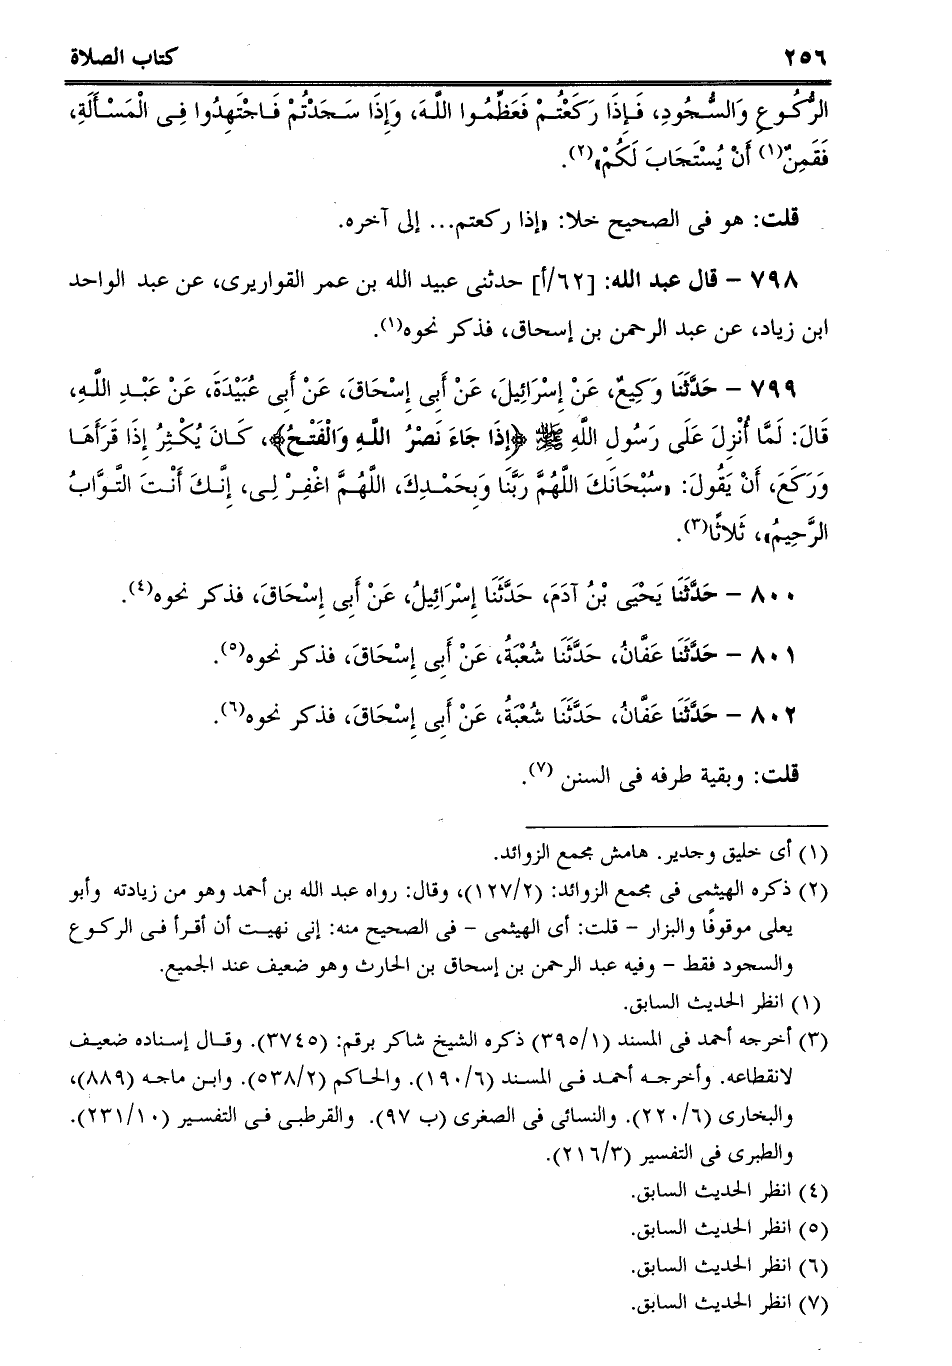 ٢٥٦ كتاب الصلاة
الرُّكُوعِ وَالسُّجُودِ، فَإِذَا رَكَعْتُمْ فَعَظِّمُوا اللَّهَ، وَإِذَا سَجَدْتُمْ فَاجْتَهِدُوا فِى الْمَسْأَلَةِ،
فَقَمِنٌ(١) أَنْ يُسْتَجَابَ لَكُمْ»(٢).
قلت: هو فى الصحيح خلا: «إذا ركعتم... إلى آخره.
٧٩٨ – قال عبد الله: [٦٢/أ] حدثنى عبيد الله بن عمر القواريرى، عن عبد الواحد
ابن زياد، عن عبد الرحمن بن إسحاق، فذكر نحوه(١).
٧٩٩ – حَدَّثَنَا وَكِيعٌ، عَنْ إِسْرَائِيلَ، عَنْ أَبِى إِسْحَاقَ، عَنْ أَبِى عُبَيْدَةَ، عَنْ عَبْدِ اللَّهِ،
قَالَ: لَمَّا أُنْزِلَ عَلَى رَسُولِ اللَّهِ ﷺ ﴿إِذَا جَاءَ نَصْرُ اللَّهِ وَالْفَتْحُ﴾، كَانَ يُكْثِرُ إِذَا قَرَأَهَا
وَرَكَعَ، أَنْ يَقُولَ: «سُبْحَانَكَ اللَّهُمَّ رَبَّنَا وَبِحَمْدِكَ، اللَّهُمَّ اغْفِرْ لِى، إِنَّكَ أَنْتَ التَّوَّابُ
الرَّحِيمُ»، ثَلاثًا(٣).
٨٠٠ – حَدَّثَنَا يَحْيَى بْنُ آدَمَ، حَدَّثَنَا إِسْرَائِيلُ، عَنْ أَبِى إِسْحَاقَ، فذكر نحوه(٤).
٨٠١ – حَدَّثَنَا عَفَّانُ، حَدَّثَنَا شُعْبَةُ، عَنْ أَبِى إِسْحَاقَ، فذكر نحوه(٥).
٨٠٢ – حَدَّثَنَا عَفَّانُ، حَدَّثَنَا شُعْبَةُ، عَنْ أَبِى إِسْحَاقَ، فذكر نحوه(٦).
قلت: وبقية طرفه فى السنن (٧).
(١) أى خليق وجدير. هامش مجمع الزوائد.
(٢) ذكره الهيثمى فى مجمع الزوائد: (١٢٧/٢)، وقال: رواه عبد الله بن أحمد وهو من زيادته وأبو
يعلى موقوفًا والبزار – قلت: أى الهيثمى – فى الصحيح منه: إنى نهيت أن أقرأ فى الركوع
والسجود فقط – وفيه عبد الرحمن بن إسحاق بن الحارث وهو ضعيف عند الجميع.
(١) انظر الحديث السابق.
(٣) أخرجه أحمد فى المسند (٣٩٥/١) ذكره الشيخ شاكر برقم: (٣٧٤٥). وقال إسناده ضعيف
لانقطاعه. وأخرجه أحمد فى المسند (١٩٠/٦). والحاكم (٥٣٨/٢). وابن ماجه (٨٨٩)،
والبخارى (٢٢٠/٦). والنسائى فى الصغرى (ب ٩٧). والقرطبى فى التفسير (٢٣١/١٠).
والطبرى فى التفسير (٢١٦/٣).
(٤) انظر الحديث السابق.
(٥) انظر الحديث السابق.
(٦) انظر الحديث السابق.
(٧) انظر الحديث السابق.